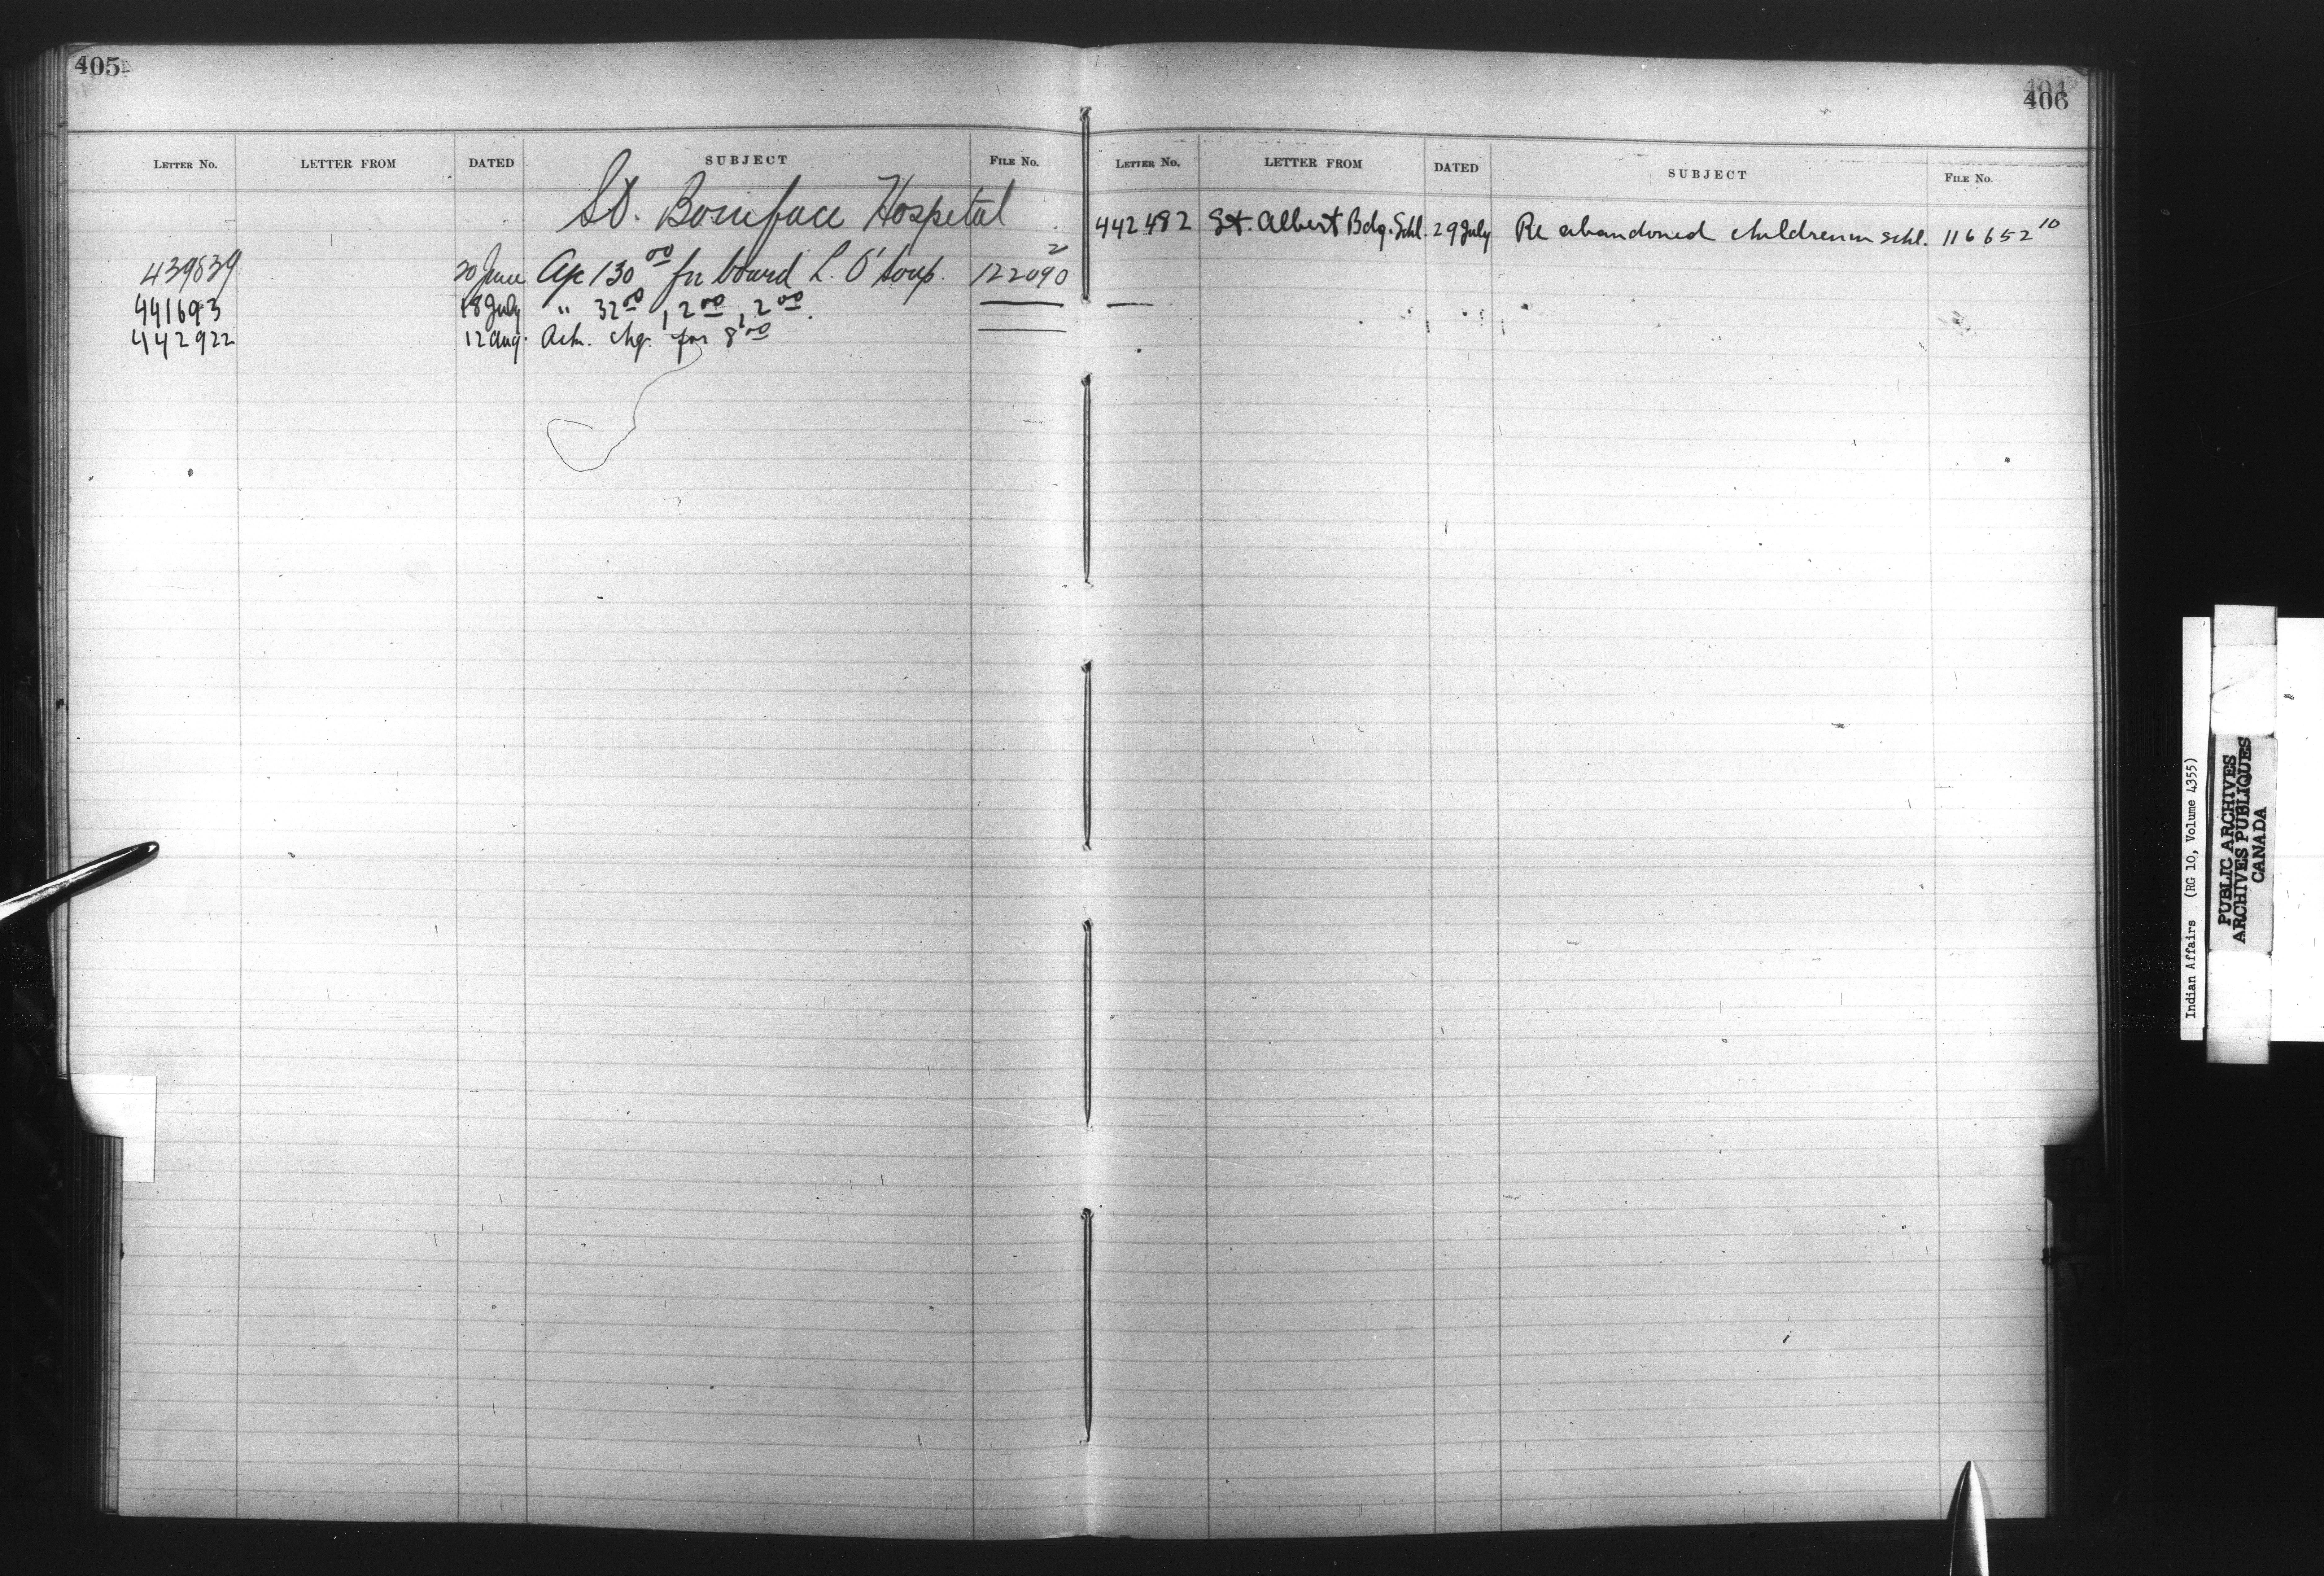 405
LETTER NO. LETTER FROM DATED SUBJECT FILE No.
St. Boniface Hospital
439839 20 June a/c 130 00 for board L. O'Soup. 122090 2
441693 18 July " 32 00, 2 00, 2 00.
442922 12 Aug. Ack. chq. for 8 00
406
LETTER NO. LETTER FROM DATED SUBJECT FILE No.
442482 St. Albert Bdg. Schl. 29 July Re abandoned children in schl. 116652 10
Indian Affairs (RG 10, Volume 4355)
PUBLIC ARCHIVES
ARCHIVES PUBLIQUES
CANADA